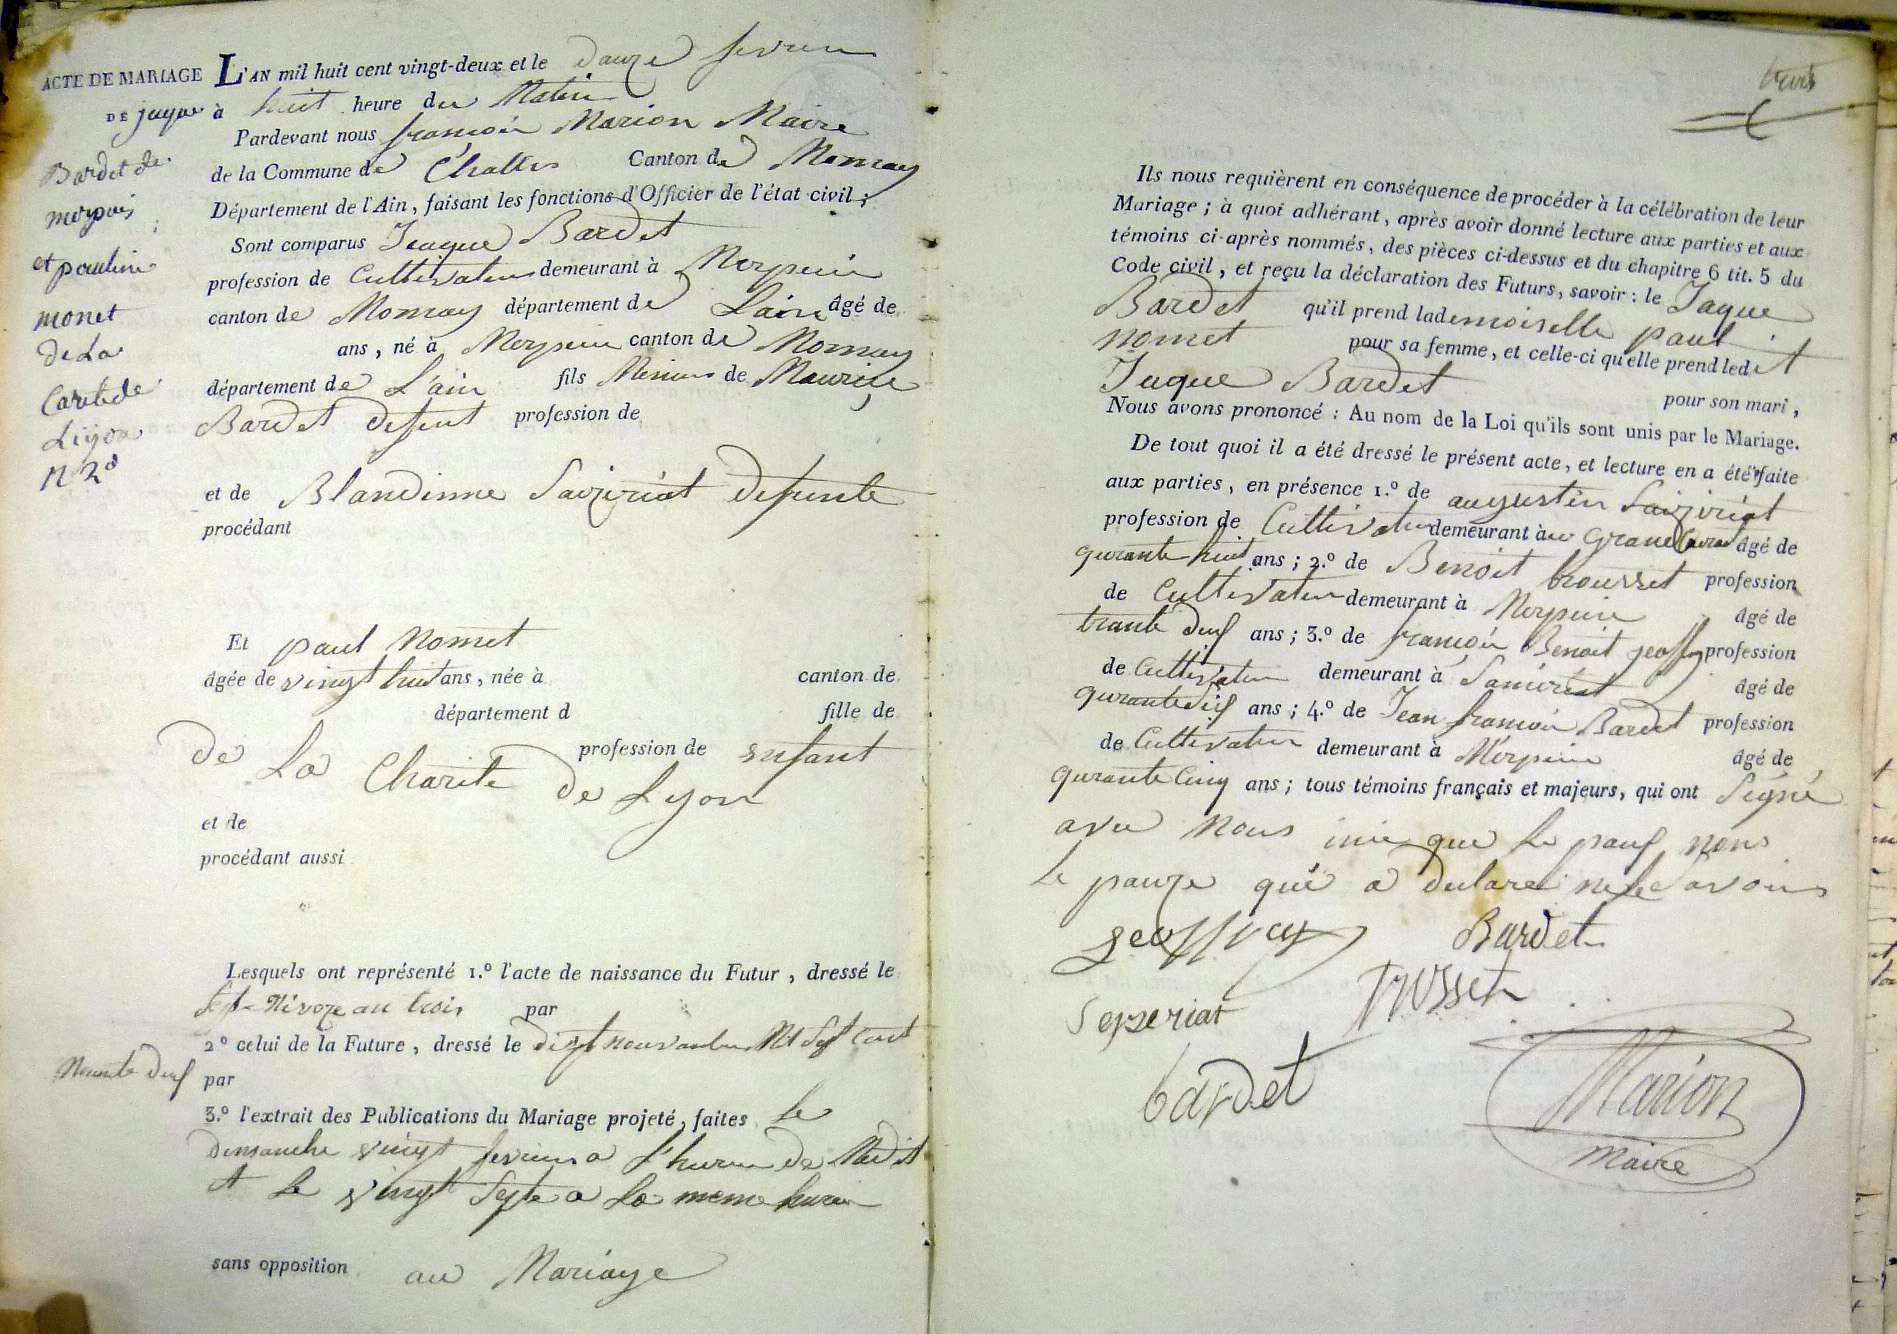 ACTE DE MARIAGE
DE jaque
Bardet de
meypuis
et pauline
monet
de La
Carité de
Liyon
N 2d
L'AN mil huit cent vingt-deux et le douze fevrier
à huit heure du Matin
Pardevant nous françois Marion Maire
de la Commune de Challes Canton de
Département de l'Ain, faisant les fonctions d'Officier de l'état civil;
Sont comparus Jaque Bardet
profession de Cultivateur demeurant à
canton de département de Lain âgé de
ans, né à canton de
département de L'ain fils Mineur de Maurice
Bardet defunt profession de
et de Blandinne defunte
procédant
Et paul Nomet
âgée de vingt huit ans, née à canton de
département d fille de
profession de enfant
de La Charité de Lyon
et de
procédant aussi
Lesquels ont représenté 1.º l'acte de naissance du Futur, dressé le
Sept Nivoze an trois par
2º celui de la Future, dressé le Sept Cent
Nonente par
3.º l'extrait des Publications du Mariage projeté, faites le
dimanche vingt fevrier a l'hure de Midit
et le vingt Septe a La meme hure
sans opposition au Mariage
trois
Ils nous requièrent en conséquence de procéder à la célébration de leur
Mariage; à quoi adhérant, après avoir donné lecture aux parties et aux
témoins ci-après nommés, des pièces ci-dessus et du chapitre 6 tit. 5 du
Code civil, et reçu la déclaration des Futurs, savoir: le Jaque
Bardet qu'il prend lademoiselle paul
nomet pour sa femme, et celle-ci qu'elle prend ledit
Jaque Bardet pour son mari,
Nous avons prononcé: Au nom de la Loi qu'ils sont unis par le Mariage.
De tout quoi il a été dressé le présent acte, et lecture en a été faite
aux parties, en présence 1.º de augustin
profession de Cultivateur demeurant au âgé de
qurante huit ans; 2.º de Benoit trousset profession
de Cultivateur demeurant à âgé de
trante ans; 3.º de françois Benoit profession
de Cultivateur demeurant à âgé de
qurante ans; 4.º de Jean françois Bardet profession
de Cultivateur demeurant à âgé de
qurante Cinq ans; tous témoins français et majeurs, qui ont Signé
avec nous que
le qui a declare ne le Savoire
geoffray Bardet
Seyzeriat trosset
bardet Marion
Maire